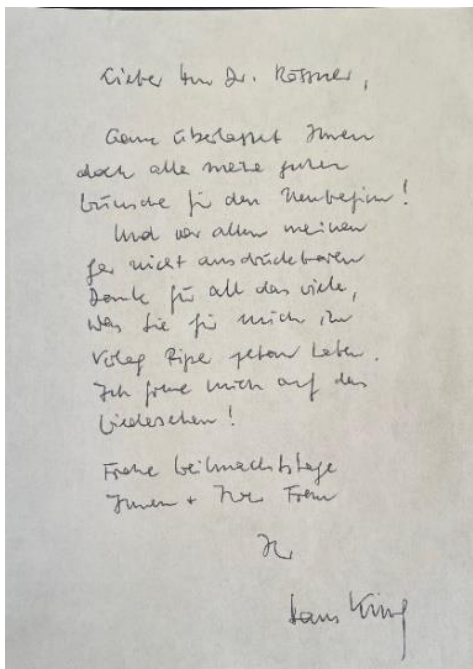 Lieber Herr Dr. Rössner,
Ganz überlastet Ihnen
doch alle meine guten
Wünsche für den Neubeginn!
Und vor allem meinen
gar nicht ausdrückbaren
Dank für all das viele,
was Sie für mich im
Verlag Piper getan haben.
Ich freue mich auf das
Wiedersehen!
Frohe Weihnachtstage
Ihnen + Ihrer Frau
Ihr
Hans Küng